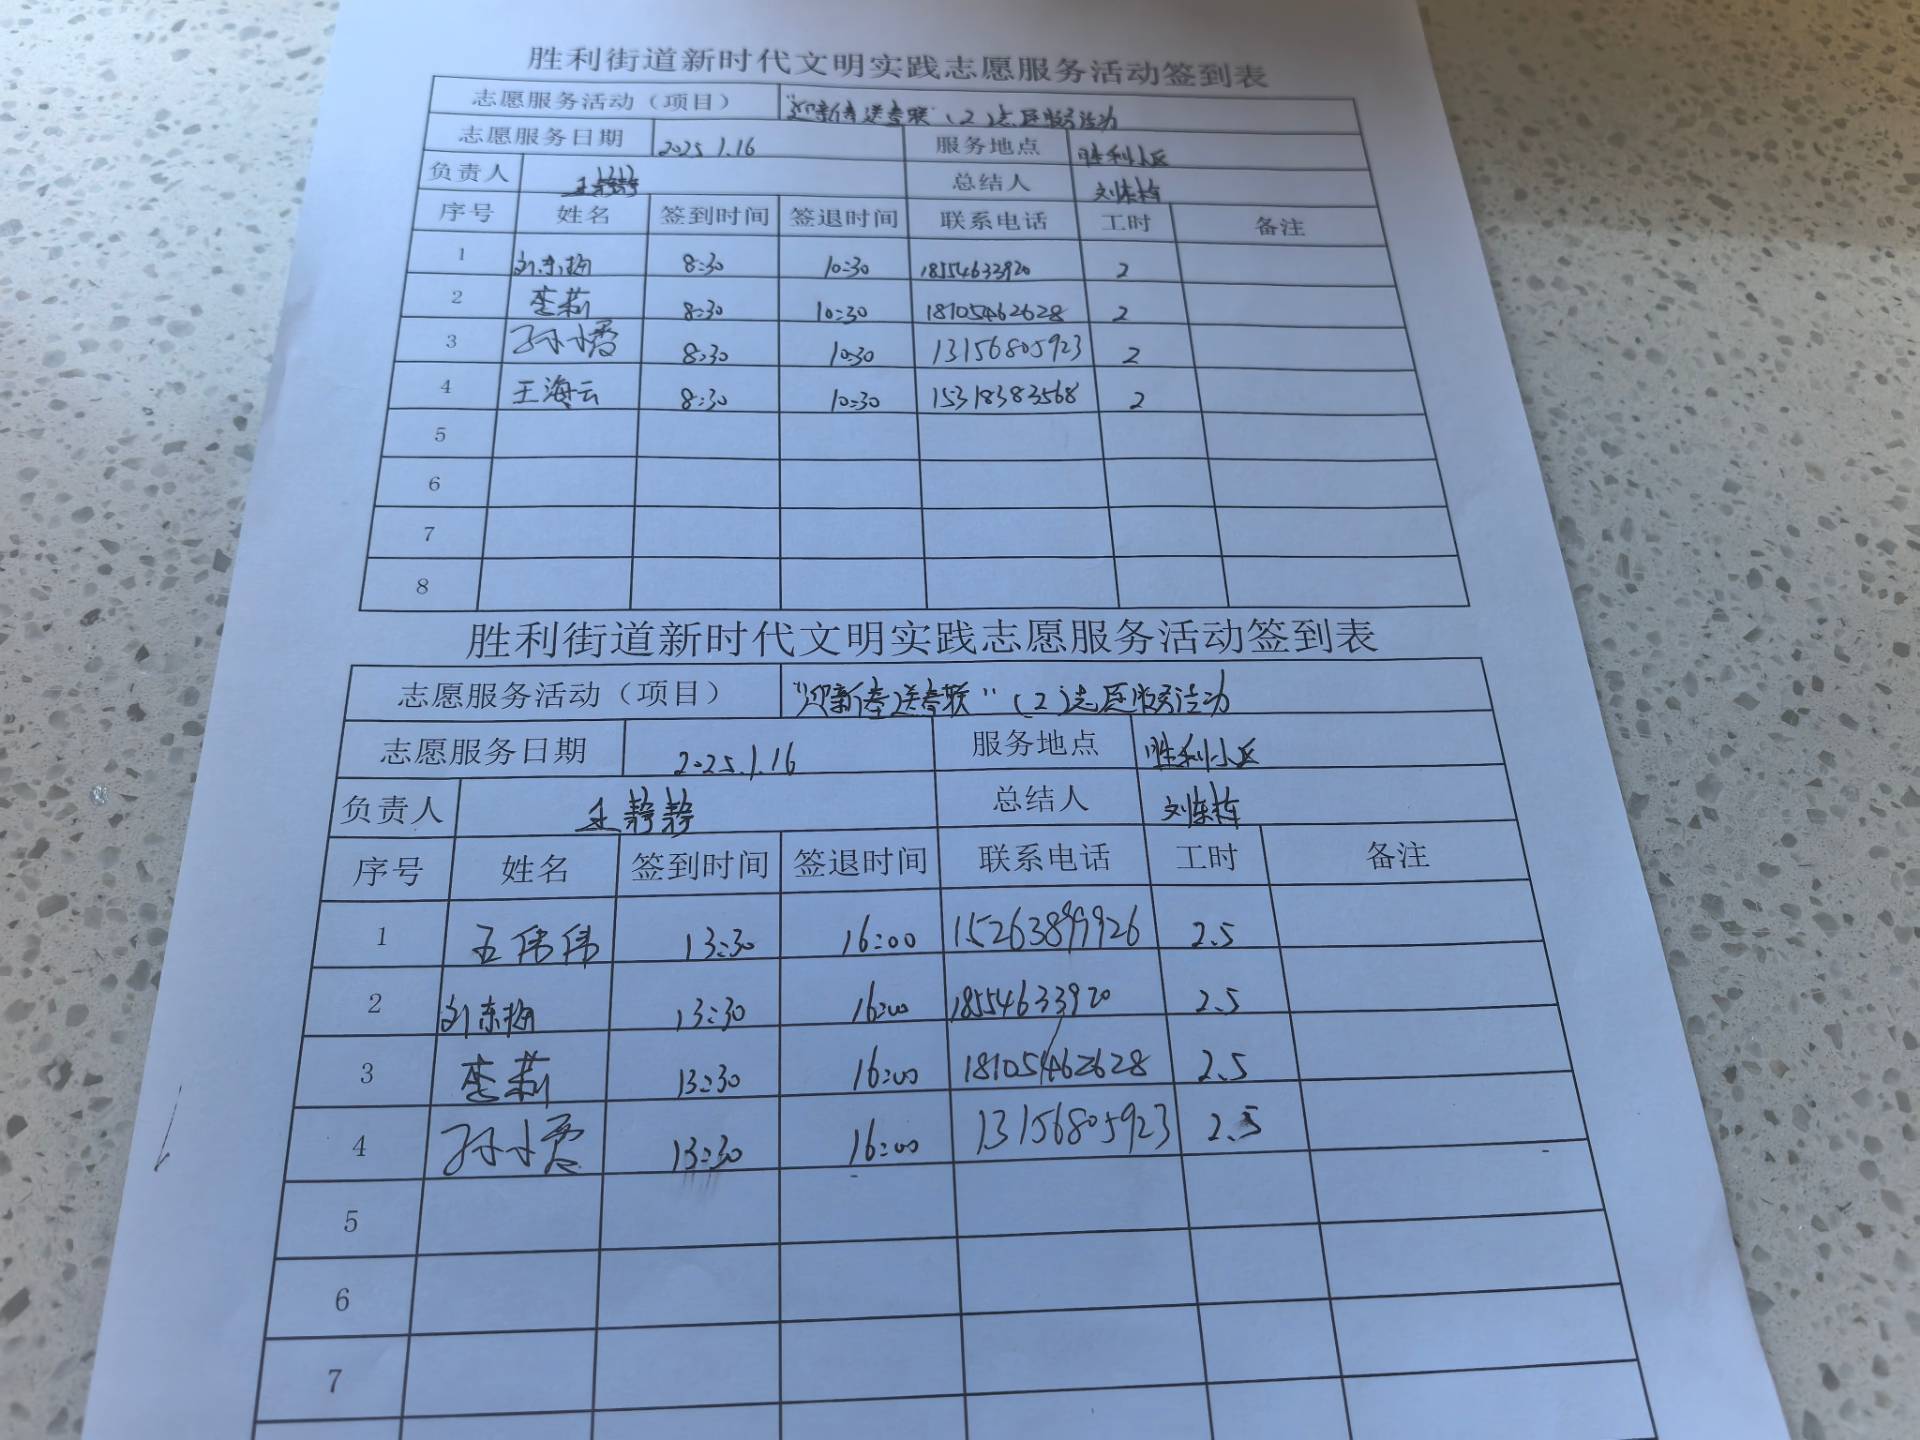 胜利街道新时代文明实践志愿服务活动签到表
志愿服务活动（项目） "迎新春送春联"（2）志愿服务活动
志愿服务日期 2025.1.16 服务地点 胜利小区
负责人 王静静 总结人 刘东梅
序号 姓名 签到时间 签退时间 联系电话 工时 备注
1 刘东梅 8:30 10:30 18554633920 2
2 李莉 8:30 10:30 18105462628 2
3 孙小霞 8:30 10:30 13156805923 2
4 王海云 8:30 10:30 15318383568 2
5
6
7
8
胜利街道新时代文明实践志愿服务活动签到表
志愿服务活动（项目） "迎新春送春联"（2）志愿服务活动
志愿服务日期 2025.1.16 服务地点 胜利小区
负责人 王静静 总结人 刘东梅
序号 姓名 签到时间 签退时间 联系电话 工时 备注
1 王伟伟 13:30 16:00 15263899926 2.5
2 刘东梅 13:30 16:00 18554633920 2.5
3 李莉 13:30 16:00 18105462628 2.5
4 孙小霞 13:30 16:00 13156805923 2.5
5
6
7